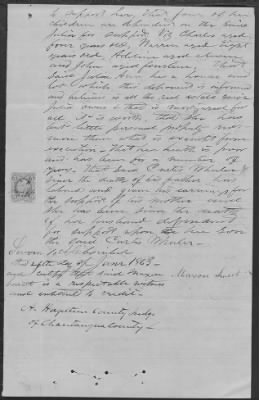 to support her, that four of her
children are dependent on the said
Julia for support Viz Charles aged
four years old, Warren aged eight
years old, Adelina aged eleven
and John aged fourteen, That
said Julia Ann has a house and
lot which this deponent is informed
and believes is all the real estate said
Julia owns & that is mortgaged for
all it is worth, that she has
but little personal property not
more than what is exempt from
execution - that her health is poor
and has been for a number of
years, that said Curtis Wheeler
since the death of his father has
labored and given his earnings for
the support of his mother and
she has been since the death
of her husband dependent
for support upon the
the said Curtis Wheeler -
Sworn & Subscribed
this fifth day of June 1863 -
and I certify that said Mason
is a respectable witness
and entitled to credit -
A. Hazeltine County Judge
of Chautauqua County -